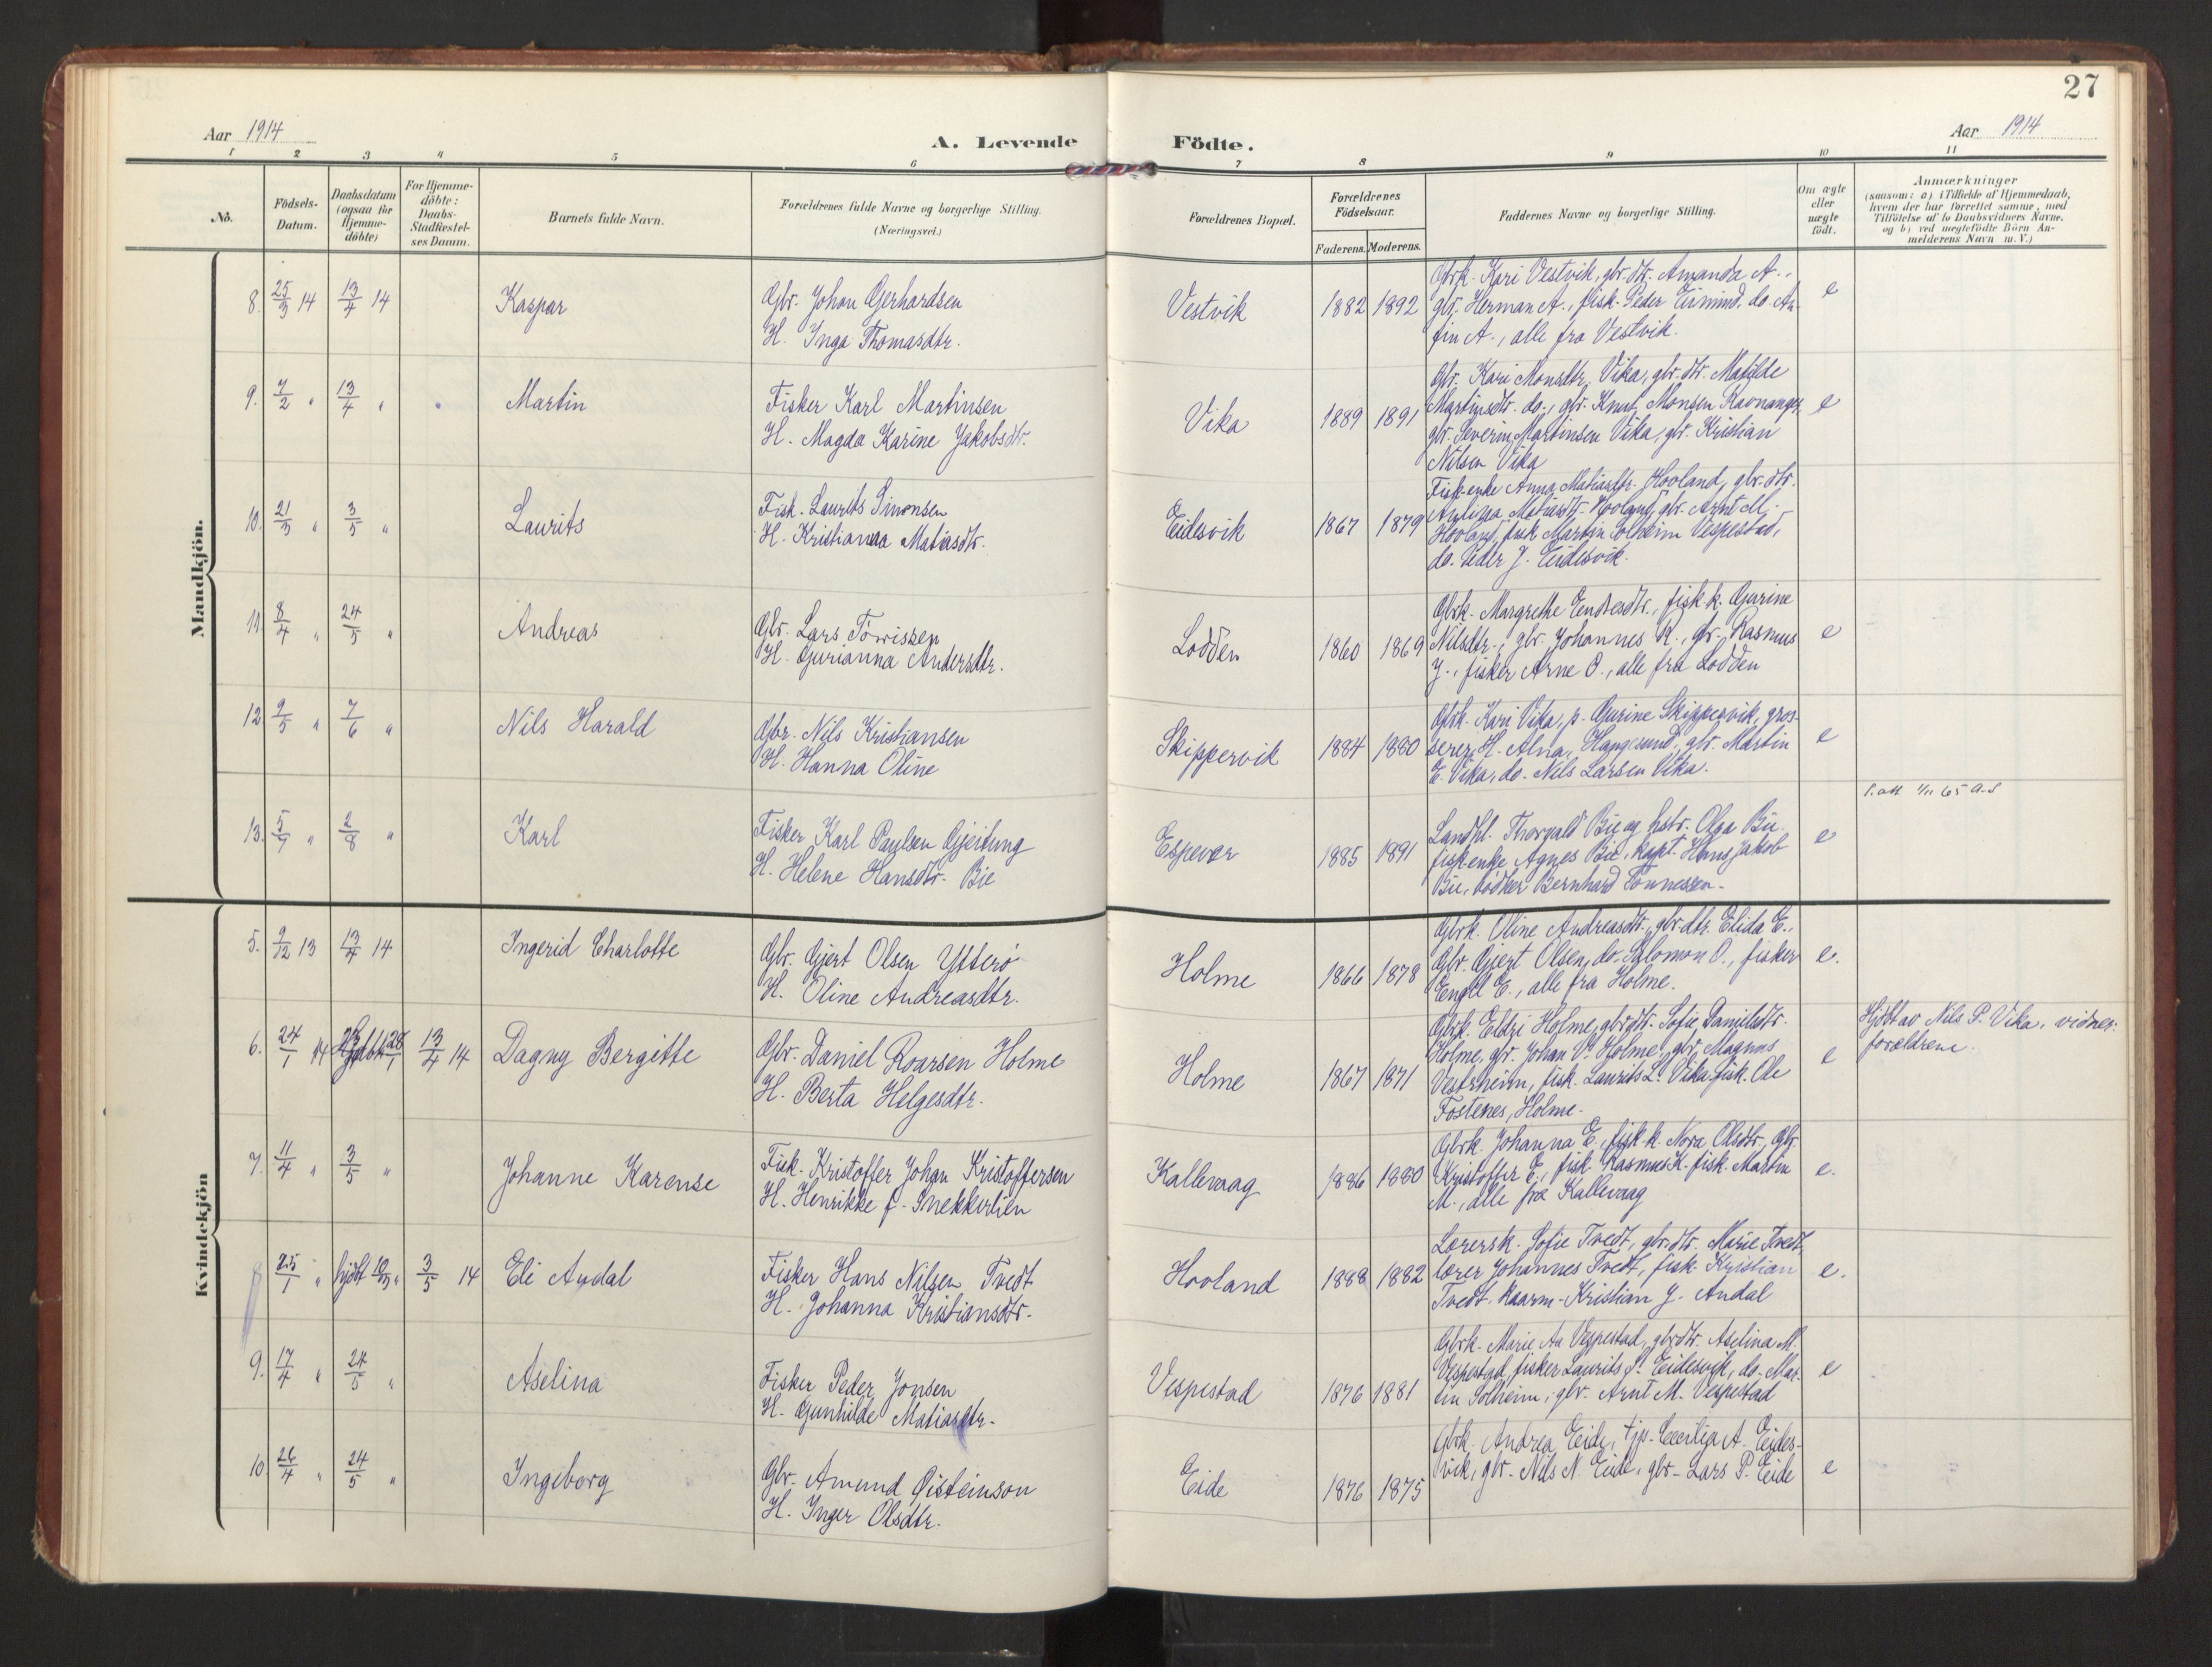 27
Aar 1914
A. Levende Födte.
Aar 1914
1 2 3 4 5 6 7 8 9 10 11
No.
Födsels-
Datum.
Daabsdatum
(ogsaa for
Hjemme-
döbte)
For Hjemme-
döbte:
Daabs-
Stadfæstel-
ses Datum.
Barnets fulde Navn.
Forældrenes fulde Navne og borgerlige Stilling.
(Næringsvei.)
Forældrenes Bopæl.
Forældrenes
Födselsaar.
Faderens. Moderens.
Faddernes Navne og borgerlige Stilling.
Om ægte
eller
uægte
födt.
Anmærkninger
(saasom: a) i Tilfælde af Hjemmedaab,
hvem der har forrettet samme, med
Tilföielse af to Daabsvidners Navne.
og b) ved uægtefödte Börn An-
melderens Navn m. V.)
Mandkjön.
8. 25/3 14 13/4 14 Kaspar
Gbr. Johan Gerhardsen
H. Inga Thomasdtr.
Vestvik 1882 1892
Gbrk. Kari Vestvik, gbr.dtr. Amanda A.,
gbr. Herman A., fisk. Peder Eimind. do. An-
fin A., alle fra Vestvik.
e
9. 7/2 " 13/4 " Martin
Fisker Karl Martinsen
H. Magda Karine Jakobsdtr.
Vika 1889 1891
Gbr. Kari Monsdtr. Vika, gbr.dtr. Matilde
Martinsdtr. do., gbr. Knut Monsen Ravnanger,
gbr. Severin Martinsen Vika, gbr. Kristian
Nilsen Vika
e
10. 21/3 " 3/5 " Laurits
Fisk. Laurits Simonsen
H. Kristianna Matiasdtr.
Eidesvik 1867 1879
Fisk.enke Anna Matiasdtr. Hovland, gbr.dtr.
Matiasdtr. Hovland, gbr. Arnt M.
Hovland, fisk. Martin Solheim Vespestad,
do. Peder J. Eidesvik.
11. 8/4 " 24/5 " Andreas
Gbr. Lars Törrissen
H. Gurianna Andersdtr.
Lodden 1860 1869
Gbrk. Margrethe Endresdtr., fisk.k. Gurine
Nilsdtr., gbr. Johannes R., gbr. Rasmus
J., fisker Arne O., alle fra Lodden
e
12 9/5 " 7/6 " Nils Harald
Gbr. Nils Kristiansen
H. Hanna Oline
Skippervik 1884 1880
Gbrk. Kari Vika, p. Gurine Skippervik, gros-
serer H. Alna, Haugesund, gbr. Martin
E. Vika, do. Nils Larsen Vika.
e
13. 5/7 " 2/8 " Karl
Fisker Karl Paulsen Gjeitung
H. Helene Hansdtr. Bie
Espevær 1885 1891
Landhl. Thorvald Bie og hstr. Olga Bie.
fisk.enke Agnes Bie, kapt. Hans Jakob
Bie, bödker Bernhard Tönnessen.
e
1/11 65
Kvindekjön
5. 9/12 13 13/4 14 Ingerid Charlotte
Gbr. Gjert Olsen Ytterö
H. Oline Andreasdtr.
Holme 1866 1878
Gbrk. Oline Andreasdtr., gbr.dtr. Elida E.,
Gbr. Gjert Olsen, do. Salomon O., fisker
Engel E., alle fra Holme.
e.
6. 24/1 14 28/1 13/4 14 Dagny Bergitte
Gbr. Daniel Roarsen Holme
H. Berta Helgesdtr.
Holme 1867 1871
Gbrk. Eldri Holme, gbrdtr. Sofie Danielsdtr.
Holme, gbr. Johan V. Holme, gbr. Magnus
Vestrheim, fisk. Laurits L. Vika. fisk. Ole
Fostenes, Holme.
e
Hjdbt av Nils P. Vika, vidner:
forældrene.
7. 11/4 " 3/5 " Johanne Karense
Fisk. Kristoffer Johan Kristoffersen
H. Henrikke f. Snekkerlien
Kallevaag 1886 1880
Gbrk. Johanna E., fisk.k. Nora Olsdtr., Gbr.
Kristoffer E., fisk. Rasmus K. fisk. Martin
M., alle fra Kallevaag
e.
8 25/1 " hjdbt 10/3 " 3/5 14 Eli Aydal
Fisker Hans Nilsen Tvedt
H. Johanna Kristiansdtr.
Hovland 1888 1882
Lærersk. Sofie Tvedt, gbr.dtr. Marie Tvedt,
lærer Johannes Tvedt, fisk. Kristian
Tvedt, Kristian J. Andal
e.
9. 17/4 " 24/5 " Aselina
Fisker Peder Jonsen
H. Gunhilde Matiasdtr.
Vespestad 1876 1881
Gbrk. Marie Aa Vespestad, gbrdtr. Aselina M.
Vespestad, fisker Laurits S. Eidesvik, do. Mar-
tin Solheim, gbr. Arnt M. Vespestad
e
10. 26/4 " 24/5 " Ingeborg
Gbr. Amund Øisteinson
H. Inger Olsdtr.
Eide 1876 1875
Gbrk. Andrea Eide, tjp. Cecilia A. Eides-
vik, gbr. Nils N. Eide, gbr. Lars P. Eide
e